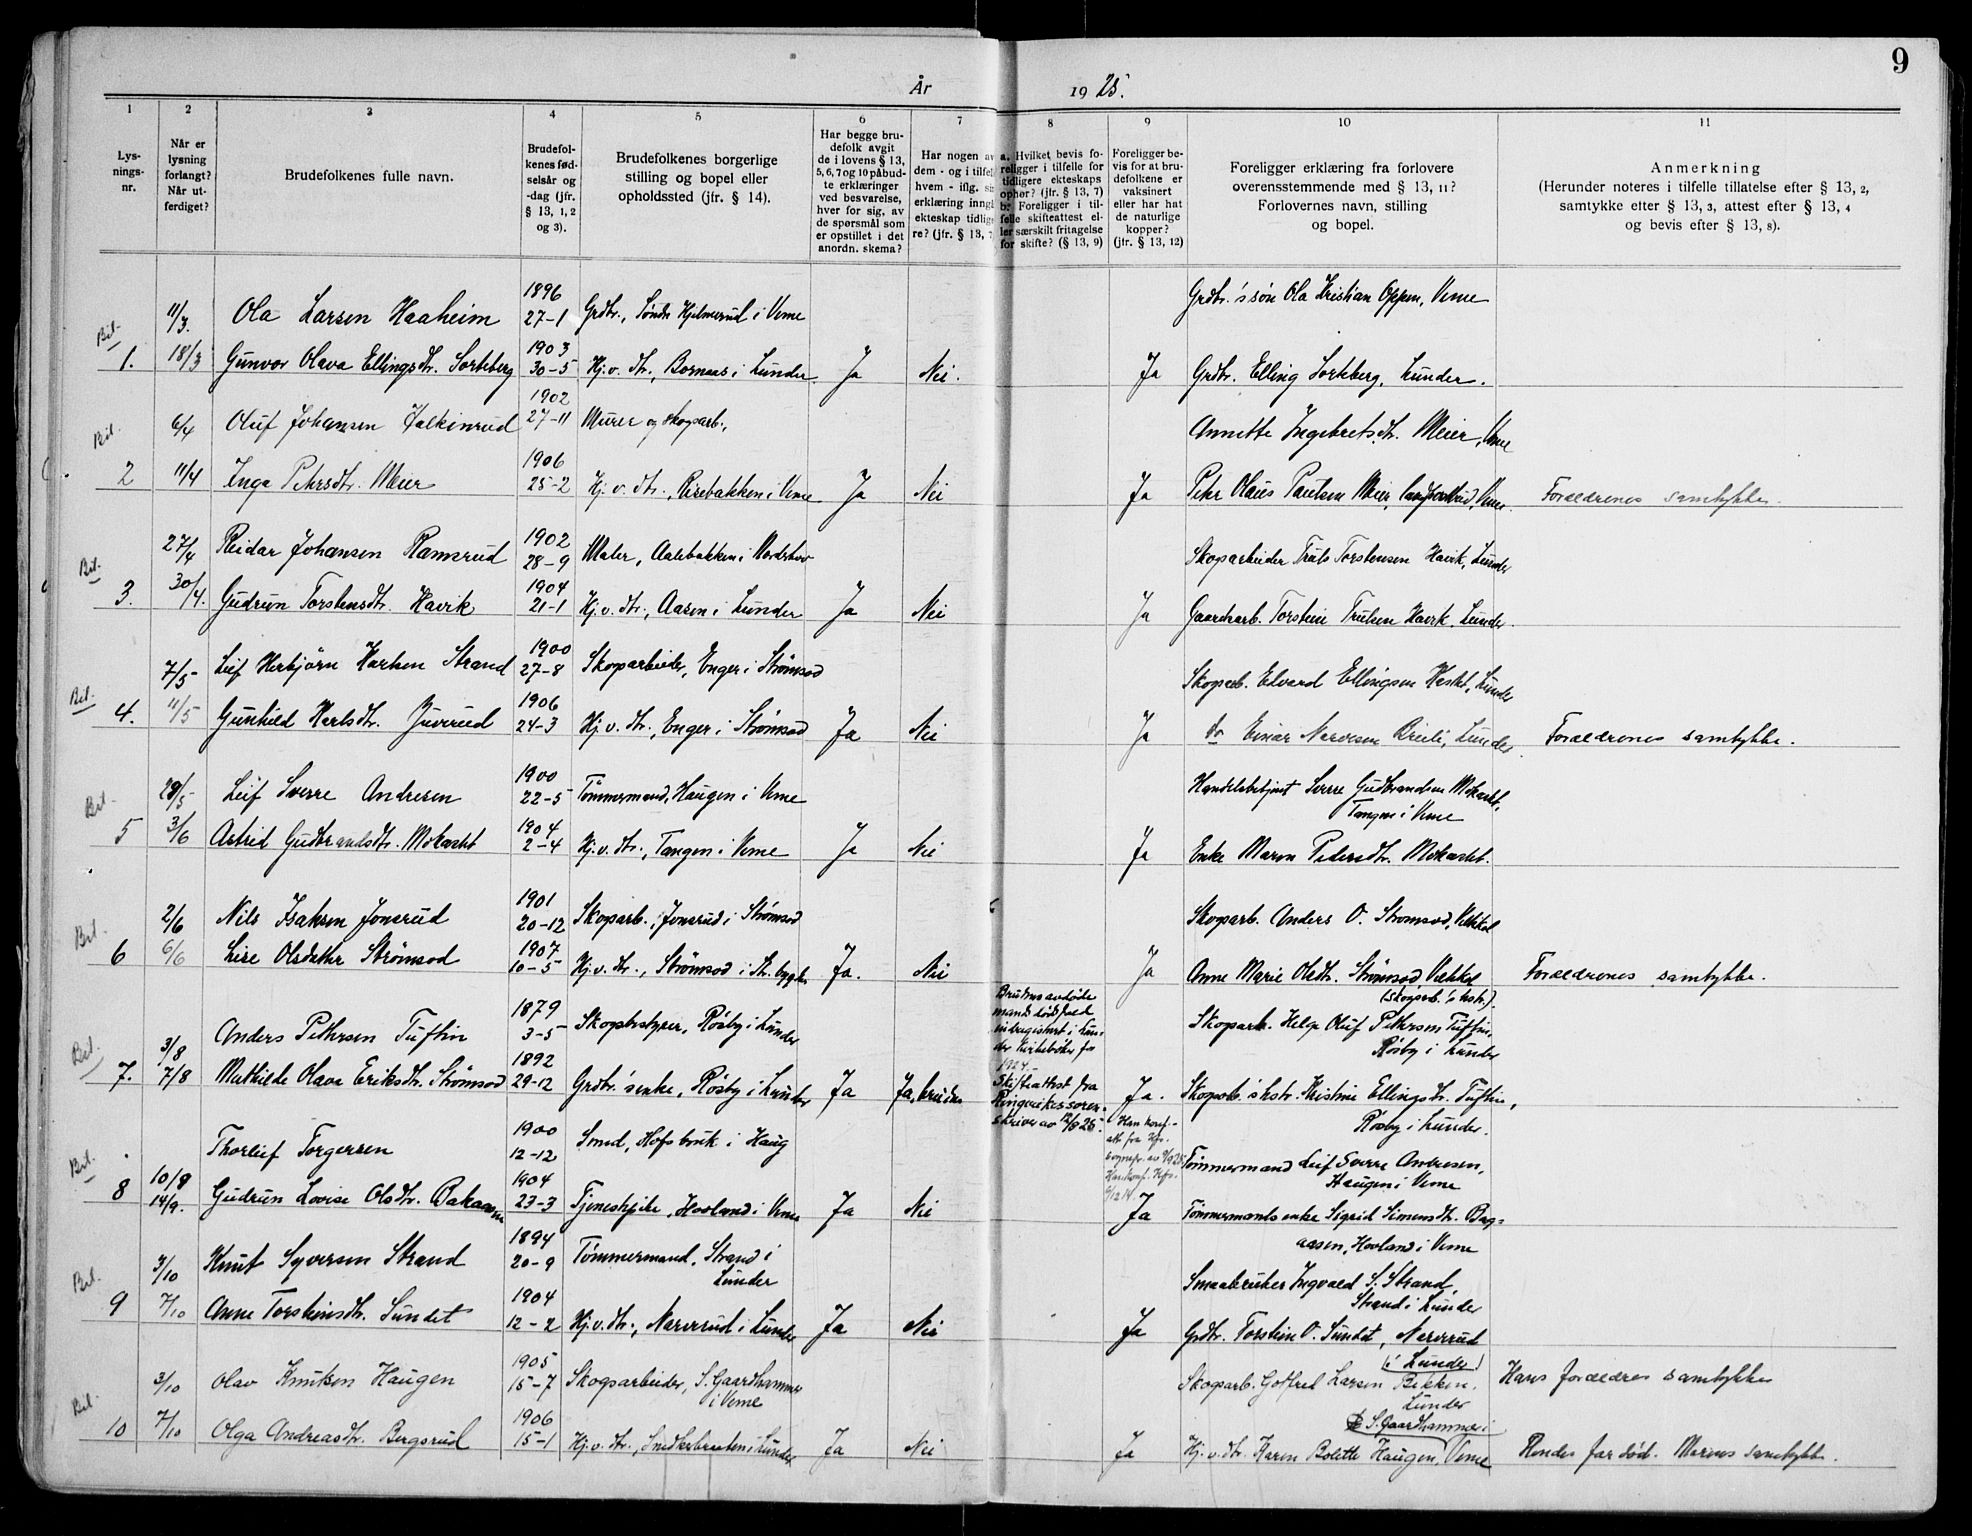 9
År 1925.
1 2 3 4 5 6 7 8 9 10 11
Lys-
nings-
nr.
Når er
lysning
forlangt?
Når ut-
ferdiget?
Brudefolkenes fulle navn.
Brudefol-
kenes fød-
selsår og
-dag (jfr.
§ 13, 1, 2
og 3).
Brudefolkenes borgerlige
stilling og bopel eller
opholdssted (jfr. § 14).
Har begge bru-
defolk avgit
de i lovens § 13,
5, 6, 7 og 10 påbud-
te erklæringer
ved besvarelse,
hver for sig, av
de spørsmål som
er opstillet i det
anordn. skema?
Har nogen av
dem - og i tilfelle
hvem - iflg. sin
erklæring inngått
ekteskap tidlige-
re? (jfr. § 13, 7
a. Hvilket bevis fo-
religger i tilfelle for
tidligere ekteskaps
ophør? (jfr. § 13, 7)
b. Foreligger i til-
felle skifteattest el-
ler særskilt fritagelse
for skifte? (§ 13, 9)
Foreligger be-
vis for at bru-
defolkene er
vaksinert
eller har hat
de naturlige
kopper?
(jfr. § 13, 12)
Foreligger erklæring fra forlovere
overensstemmende med § 13, 11?
Forlovernes navn, stilling
og bopel.
Anmerkning
(Herunder noteres i tilfelle tillatelse efter § 13, 2,
samtykke efter § 13, 3, attest efter § 13, 4
og bevis efter § 13, 8).
Bil. 11/3. Ola Larsen Haaheim 1896 27-1 Grdbr., Søndr. Hjelmerud i Veme Grdbr.'s søn Ola Kristian Oppen, Veme
1. 18/3 Gunvor Olava Ellingsdtr. Sorkeberg 1903 30-5 Hj.v. dtr., Bornaas i Lunder. Ja Nei. Ja Grdbr. Elling Sorkeberg, Lunder.
Bil. 6/4 Oluf Johansen Falkinrud 1902 27-11 Murer og skogsarb., Annette Ingebretsdtr. Meier, Veme
2 11/4 Inga Petersdtr. Meier 1906 25-2 Hj.v. dtr., i Veme Ja Nei Ja Peter Olaus Paulsen Meier, Veme Forældrenes samtykke.
Bil. 27/4 Reidar Johansen Ramsrud 1902 28-9 Maler, Aalebakken i Norderhov Skogsarbeider Truls Torstensen Havik, Lunder
3. 30/4. Gudrun Torstensdtr. Havik 1904 21-1 Hj.v. dtr., Aasen i Lunder Ja Nei Ja Gaardsarb. Torstein Trulsen Havik, Lunder.
Bil. 7/5 Leif Herbjörn Karlsen Strand 1900 27-8 Skogsarbeider, Enger i Strømsod Skogsarb. Edvard Ellingsen, Lunder
4. 11/5 Gunhild Karlsdtr. Juverud 1906 24-3 Hj.v. dtr., Enger i Strømsod Ja Nei Ja do Einar Narvesen Breili, Lunder Forældrenes samtykke.
Bil. 29/5 Leif Sverre Andresen 1900 22-5 Tømmermand, Haugen i Veme Handelsbetjent Sverre Gudbrandsen Mokastet,
Tangen i Veme
5 3/6 Astrid Gudbrandsdtr. Mokastet 1904 2-4 Hj.v. dtr., Tangen i Veme Ja Nei Ja Enke Maren Pedersdtr. Mokastet.
Bil. 2/6 Nils Isaksen Jonsrud 1901 20-12 Skogsarb., Jonsrud i Strømsod Skogsarb. Anders O. Strømsod,
6 6/6 Lise Olsdatter Strømsod 1907 10-5 Hj.v. dtr., Strømsod i Str. bygda Ja. Nei Ja Anne Marie Olsdtr. Strømsod, Forældrenes samtykke.
(Skogsarb.'s hstr.)
Bil. 3/8 Anders Petersen Tuftin 1879 3-5 Skogbestyrer, Røsby i Lunder Skogsark. Helge Oluf Petersen Tuftin,
Røsby i Lunder
7. 7/8 Mathilde Olava Eriksdtr. Strømsod 1892 29-12 Grdbr.'s enke, Røsby i Lunder Ja Ja, bruden
Brudens avdøde
mands dødsfald
indregistrert i Lun-
der kirkebøker for
1924.-
Skifteattest fra
Ringerikes soren-
skriver av
Ja. Skogsarb.'s hstr. Kristine Ellingsdtr. Tuftin,
Røsby i Lunder.
Bil. 10/8 Thorleif Torgersen 1900 12-12 Smed, Hofsbruk i Haug Tømmermand Leif Sverre Andresen,
Haugen i Veme
8 14/9. Gudrun Lovise Olsdtr. Bakaasen 1904 23-3 Tjenestpike, Hovland i Veme Ja Nei Ja Tømmermands enke Sigrid Simensdtr. Bag-
aasen, Hovland i Veme
Bil. 3/10 Knut Syversen Strand 1894 20-9 Tømmermand, Strand i
Lunder Smaabruker Ingvald S. Strand,
Strand i Lunder
9 7/10 Anne Torsteinsdtr. Sundet 1904 12-2 Hj.v. dtr., Narverud i Lunder Ja Nei Ja Grdbr. Torstein O. Sundet, Narverud
(i Lunder)
Bil. 3/10 Olav Knutsen Haugen 1905 15-7 Skogsarbeider, S. Gaardhammer
i Veme Skogsarb. Gotfred Larsen Bekken,
Lunder Hans forældres samtykke
S. Gaardhammer i
10 7/10 Olga Andreasdtr. Bergsrud 1906 15-1 Hj.v. dtr., Snekkerbraaten i Lunder Ja Nei Ja Hj.v. dtr. Karen Bolette Haugen, Veme Hendes far død. Morens samtykke.